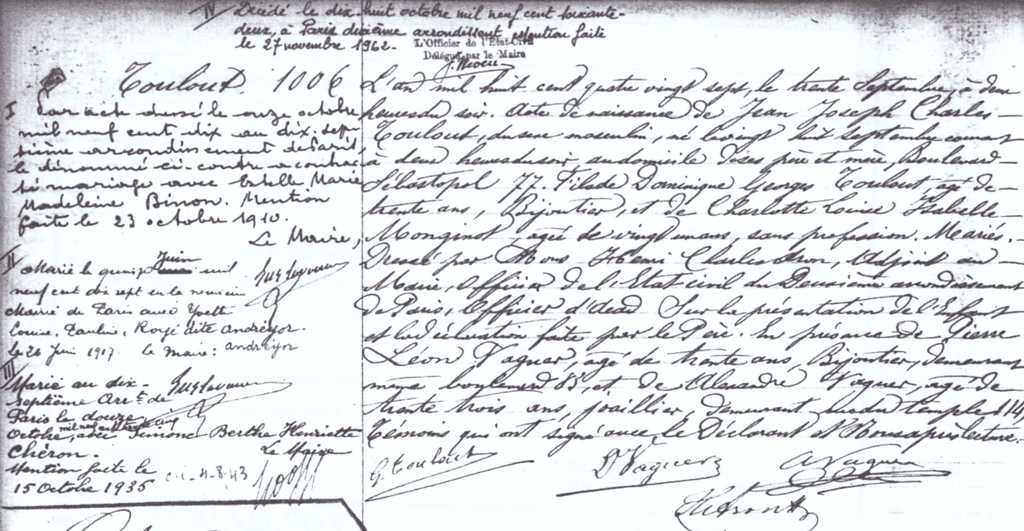 IV Décédé le dix-huit octobre mil neuf cent soixante-
deux, à Paris dixième arrondissement mention faite
le 27 novembre 1962.
L'Officier de l'Etat-Civil
Délégué par le Maire
Toulout. 1006
I Par acte dressé le onze octobre
mil neuf cent dix au dix-sept-
tième arrondissement de Paris,
le dénommé ci-contre a contrac-
té mariage avec Estelle Marie
Madeleine Binon. Mention
faite le 23 octobre 1910.
Le Maire,
II Marié le quinze Juin mil
neuf cent dix sept en la neuvième
Mairie de Paris avec Yvette
Louise, Roze dite Andreyor.
le 26 Juin 1917. Le Maire: andreyor
III
Marié au dix-
septième Arrt. de
Paris le douze
Octobre mil neuf cent trente cinq
avec Simone Berthe Henriette
Chéron.
Le Maire
Mention faite le
15 Octobre 1935
4-8-43
L'an mil huit cent quatre vingt sept, le trente Septembre, à deux
heures du soir. Acte de naissance de Jean Joseph Charles
Toulout, du sexe masculin, né le vingt huit septembre courant
à deux heures du soir, au domicile de ses père et mère, Boulevard
Sébastopol 77. Fils de Dominique Georges Toulout, agé de
trente ans, Bijoutier, et de Charlotte Louise Isabelle
Monginot agée de vingt un ans, sans profession. Mariés.
Dressé par Nous Henri Charles Aron, Adjoint au
Maire, Officier de l'Etat civil du Deuxième arrondissement
de Paris, Officier d'Acad Sur la présentation de l'Enfant
et la déclaration faite par le Père. En présence de Pierre
Léon Vaguer, agé de trente ans, Bijoutier, demeurant
même boulevard 85, et de Alexandre Vaguer, agé de
trente trois ans, joaillier, demeurant rue du temple 114
Témoins qui ont signé avec le Déclarant et Nous après lecture.
G. Toulout
Vaguer
A Vaguer